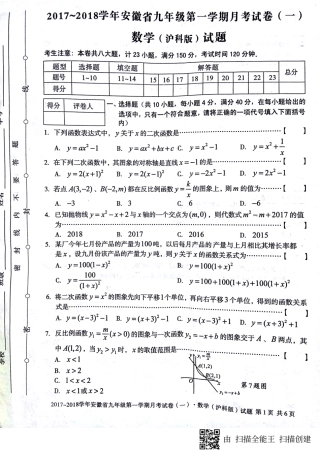 2017~2018学年安徽省九年级第一学期月考试卷(一)
数学(沪科版)试题
考生注意:本卷共八大题,计23小题,满分150分,考试时间120分钟.
题型 选择题 填空题 解答题 总分
题号 1~10 11~14 15 16 17 18 19 20 21 22 23
得分
得分 评卷人
一、选择题(共10小题,每小题4分,满分40分,在每小题给出的
选项中,只有一个符合题意,请将正确的一项代号填入下面括号
内)
1. 下列函数表达式中,y关于x的二次函数是【 】
A. y=ax²-1 B. y=ax²+bx+c C. y=x²-1
2. 在下列二次函数中,其图象的对称轴是直线x=-1的是【 】
A. y=2(x+1)² B. y=2(x-1)² C. y=-2x²-1
3. 若点A(3,-2)、B(-2,m)都在反比例函数y=k/x的图象上,则m的值为【 】
A. -3 B. 3
4. 已知抛物线y=x²-x+2与x轴的一个交点为(m,0),则代数式m²-m+2017的值
为【 】
A. 2018 B. 2017 C. 2016 D. 2015
5. 某厂今年七月份产品的产量为100吨,以后每月产品的产量与上月相比其增长率都
是x,设九月份该产品的产量为y吨,则y关于x的函数关系式为【 】
A. y=100(1-x)² B. y=100(1+x)²
C. y=100/(1+x)² D. y=100+100(1+x)+100(1+x)²
6. 将二次函数y=x²的图象先向下平移1个单位,再向右平移3个单位,得到的函数关系
式是【 】
A. y=(x-3)²-1 B. y=(x+3)²-1 C. y=(x-3)²+1 D. y=(x+3)²+1
7. 反比例函数y₁=m/x(x>0)的图象与一次函数y₂=-x+b的图象交于A、B两点,其
中A(1,2),当y₂>y₁时,x的取值范围是【 】
A. x<1
B. x<2
C. 1<x<2
D. x>2
A(1,2)
第7题图
2017~2018学年安徽省九年级第一学期月考试卷(一)·数学(沪科版)试题 第1页 共6页
由 扫描全能王 扫描创建